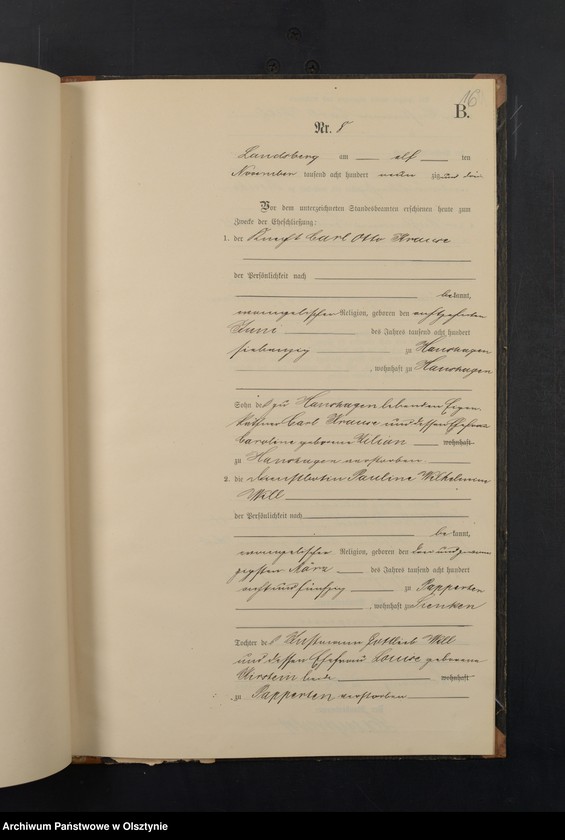 16
B.
Nr. 8
Landsberg am elf ten
November tausend acht hundert neun zig und drei
Vor dem unterzeichneten Standesbeamten erschienen heute zum
Zwecke der Eheschließung:
1. der Knecht Carl Otto Krause
der Persönlichkeit nach
be kannt,
evangelischer Religion, geboren den achtzehnten
Juni des Jahres tausend acht hundert
siebenzig zu Hanshagen
, wohnhaft zu Hanshagen
Sohn des zu Hanshagen lebenden Eigen-
käthner Carl Krause und dessen Ehefrau
Caroline geborene Kilian wohnhaft
zu Hanshagen verstorben
2. die Dienstbotin Pauline Wilhelmine
Will
der Persönlichkeit nach
be kannt,
evangelischer Religion, geboren den
März des Jahres tausend acht hundert
acht und fünfzig zu Papperten
, wohnhaft zu Sienken
Tochter des Instmann Gottlieb Will
und dessen Ehefrau Louise geborene
beide wohnhaft
zu Papperten verstorben
Archiwum Państwowe w Olsztynie